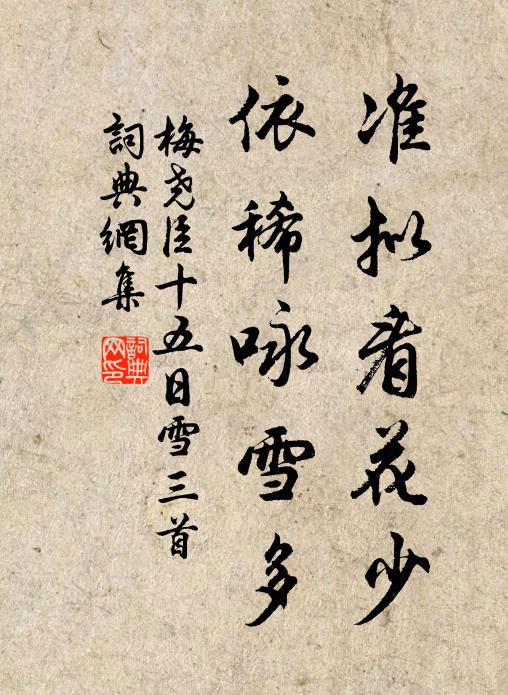 准拟看花少
依稀咏雪多
梅尧臣十五日雪三首
詞典網集
詞典网印